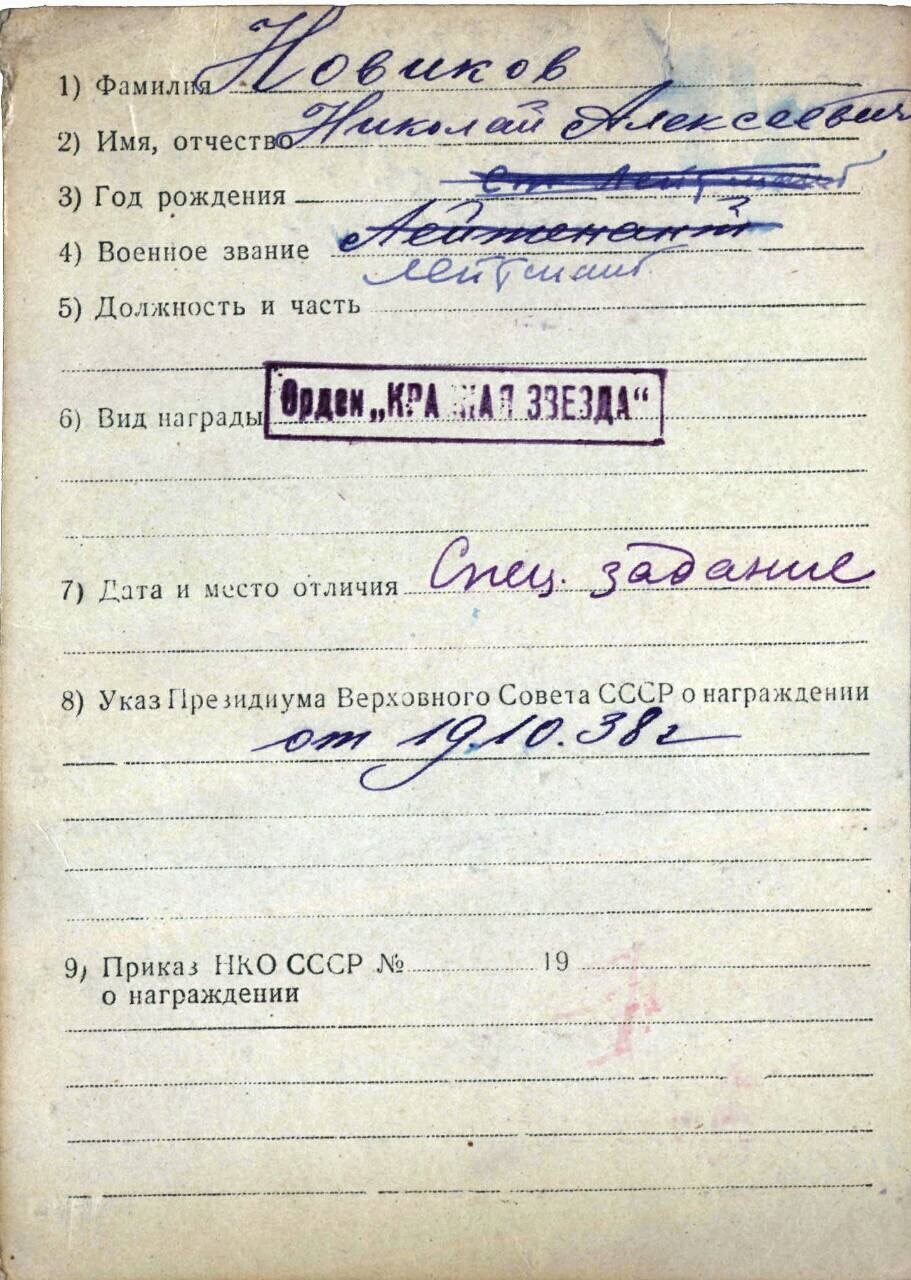 1) Фамилия Новиков
2) Имя, отчество Николай Алексеевич
3) Год рождения
Ст. Лейтенант
4) Военное звание Лейтенант
лейтенант
5) Должность и часть
6) Вид награды Орден „КРАСНАЯ ЗВЕЗДА“
7) Дата и место отличия Спец. задание
8) Указ Президиума Верховного Совета СССР о награждении
от 19.10.38г
9) Приказ НКО СССР № 19
о награждении